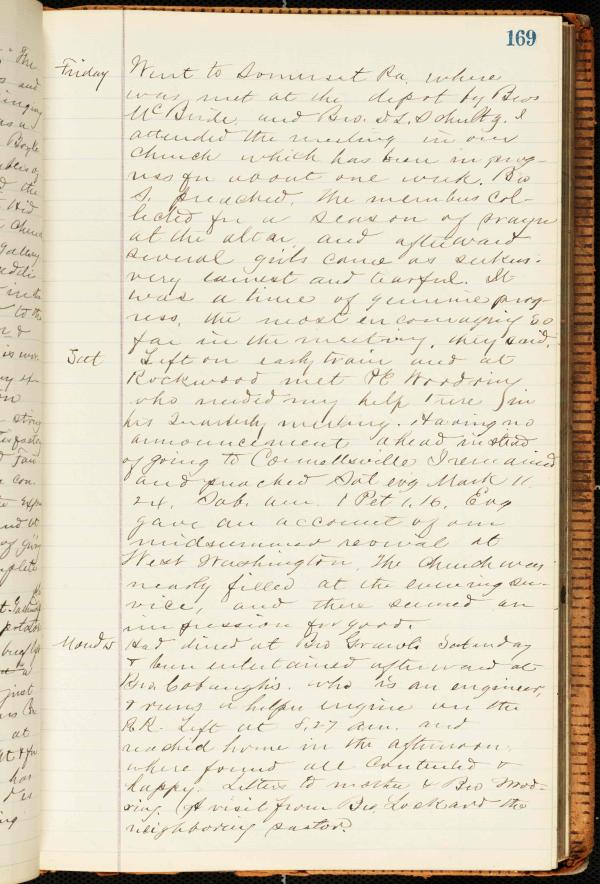 169
Friday Went to Somerset Pa, where
was met at the depot by Bros
McBride, and Bro. D.L. Schultz. I
attended the meeting in our
church which has been in prog-
ress for about one week. Bro
S. preached. The members col-
lected for a season of prayer
at the altar, and afterward
several girls came as seekers-
very earnest and tearful. It
was a time of genuine prog-
ress, the most encouraging so
far in the meeting, they said.
Sat Left on early train and at
Rockwood met Woodring
who needed my help here in
his Quarterly meeting. Having no
announcement ahead instead
of going to Connellsville I remained
and preached Sat evg Mark 11.
24. Sab. am. 1 Pet 1.16. Evg
gave an account of our
midsummer revival at
West Washington. The church was
nearly filled at the evening ser-
vice, and there seemed an
impression for good.
Mond Had dined at Bro Saturday
& been entertained afterward at
Bro. who is an engineer,
& runs a helper engine on the
RR. Left at 8,27 am. and
reached home in the afternoon,
where found all contented &
happy. Letters to mother & Bro Wood-
ring. (A visit from Bro. Lockard the
neighboring pastor.